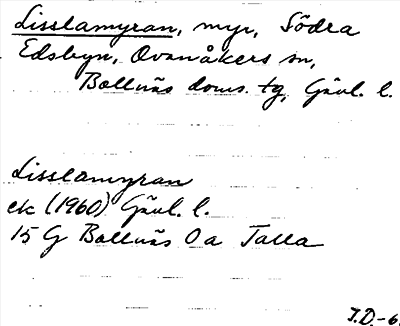 Lisslamyran, myr, Södra
Edsbyn, Ovanåkers sn,
Bollnäs doms. tg, Gävl. l.
Lisslamyran
ek (1960) Gävl. l.
15 G Bollnäs 0 a Talla
J.D.-6